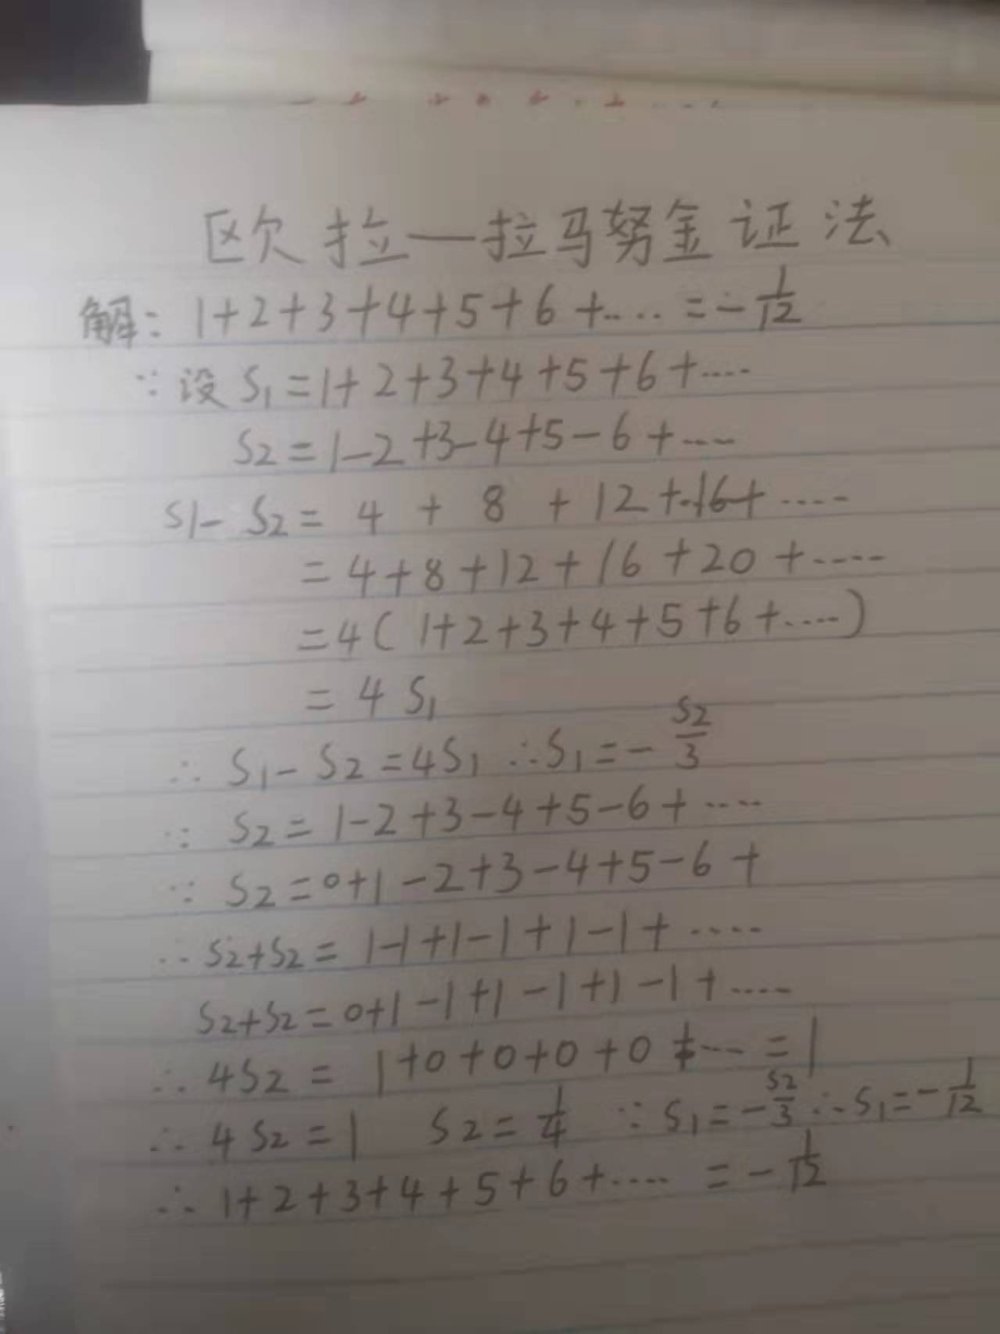 欧拉一拉马努金证法
解: 1+2+3+4+5+6+.... =-1/12
∵设 S₁=1+2+3+4+5+6+....
S2=1-2+3-4+5-6+....
S1-S2= 4 + 8 + 12+16+ ....
=4+8+12+16+20+....
=4(1+2+3+4+5+6+....)
= 4 S₁
∴ S₁-S2=4S₁ ∴S₁=-S2/3
∵ S2=1-2+3-4+5-6+....
∵ S2=0+1-2+3-4+5-6+
∴S2+S2= 1-1+1-1+1-1+ ....
S2+S2=0+1-1+1-1+1-1+....
∴ 4S2 = 1+0+0+0+0+.... =1
∴ 4S2=1 S2=1/4 ∵S₁=-S2/3∴S₁=-1/12
∴ 1+2+3+4+5+6+.... =-1/12